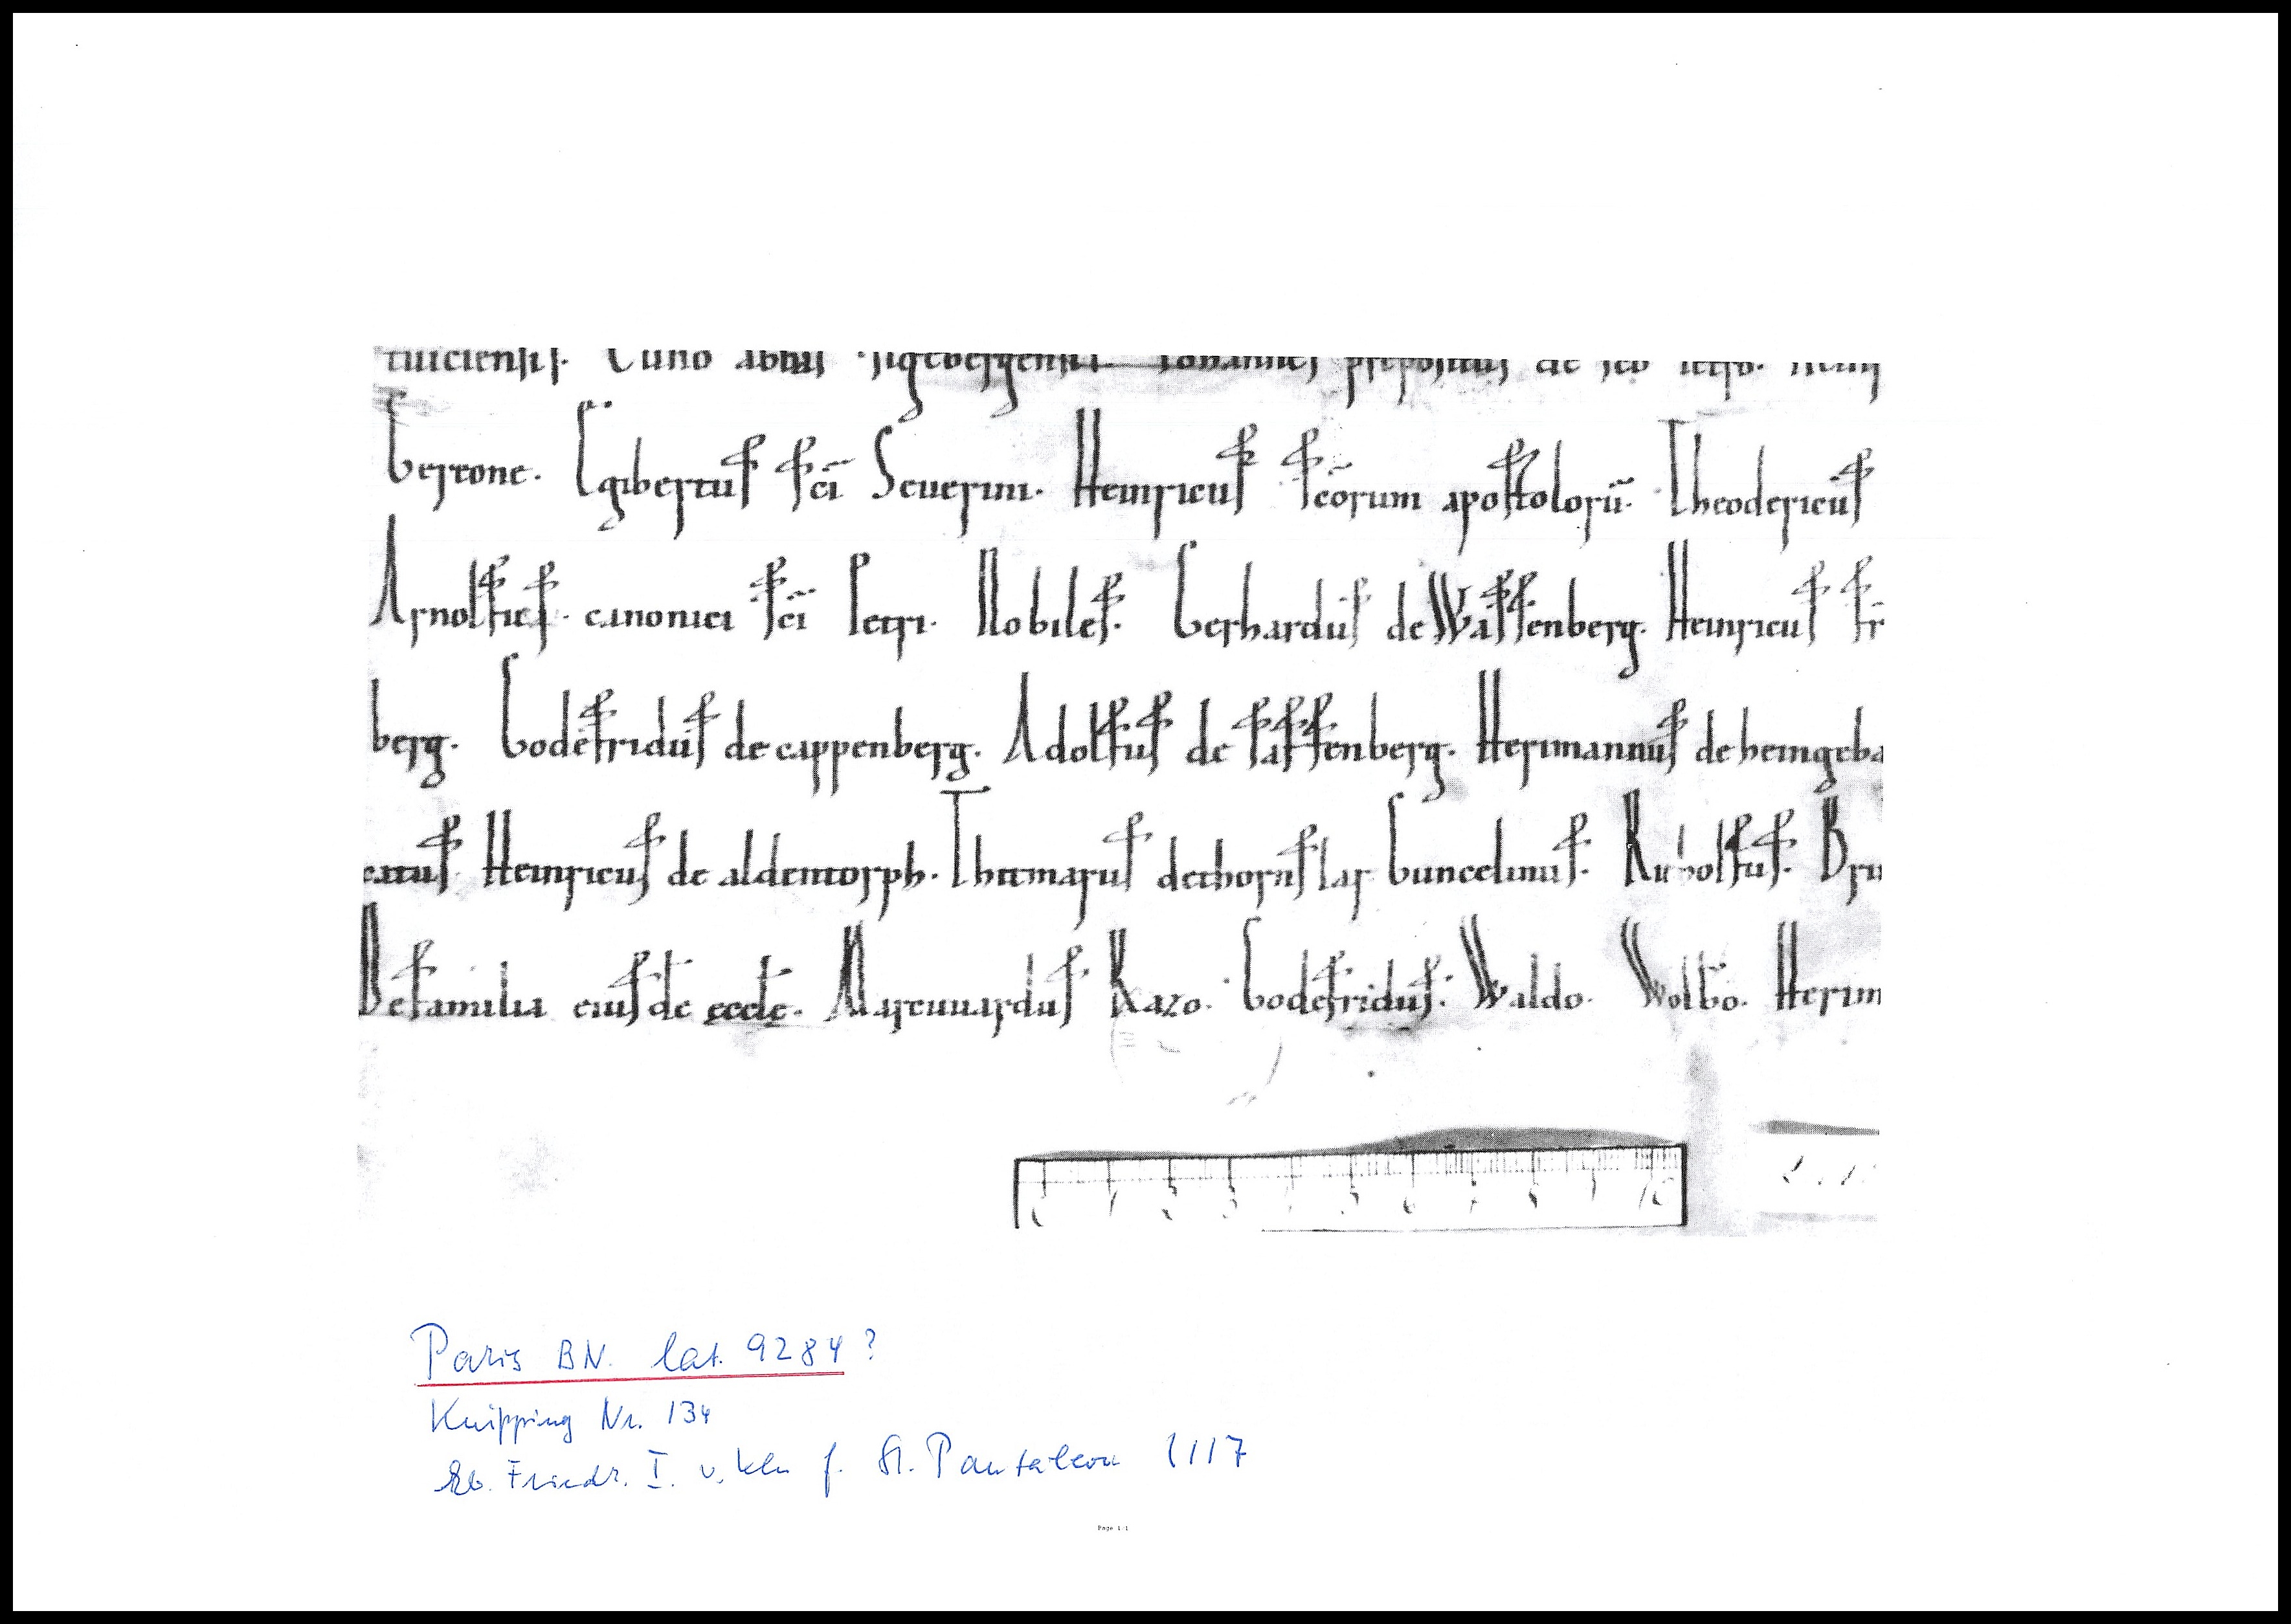 tuiciensis. Cuno abbas sigebergensis Iohannes prepositus de sco petro. Heinr
Gereone. Egibertus sci̅ Seuerini. Heinricus sco̅rum apostoloru̅. Theodericus
Arnoldus canonici sci̅ Petri. Nobiles. Gerhardus de Wassenberg. Heinricus fr
berg. Godefridus de cappenberg. Adolfus de saffenberg. Herimannus de heingeba
catus Heinricus de aldentorph. Thitmarus de thornslar Guncelinus. Rudolfus. Bru
De familia eiusde̅ eccle̅. Marcuuardus Razo. Godefridus. Waldo. Wolbo. Herim
Paris BN. lat. 9284?
Knipping Nr. 134
Eb. Friedr. I. v. Kln f. St. Pantaleon 1117
Page 1/1